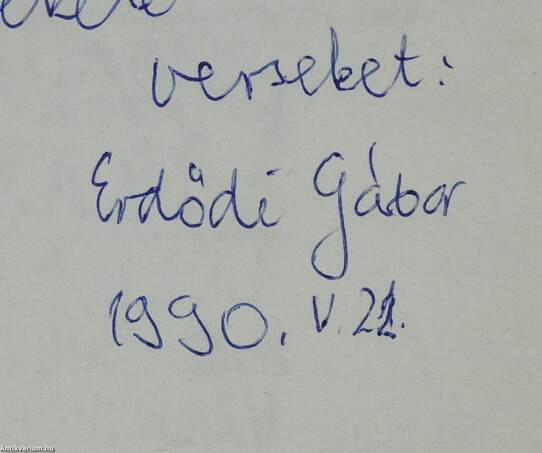 verseket:
Erdődi Gábor
1990. V. 21.
Antikvarium.hu